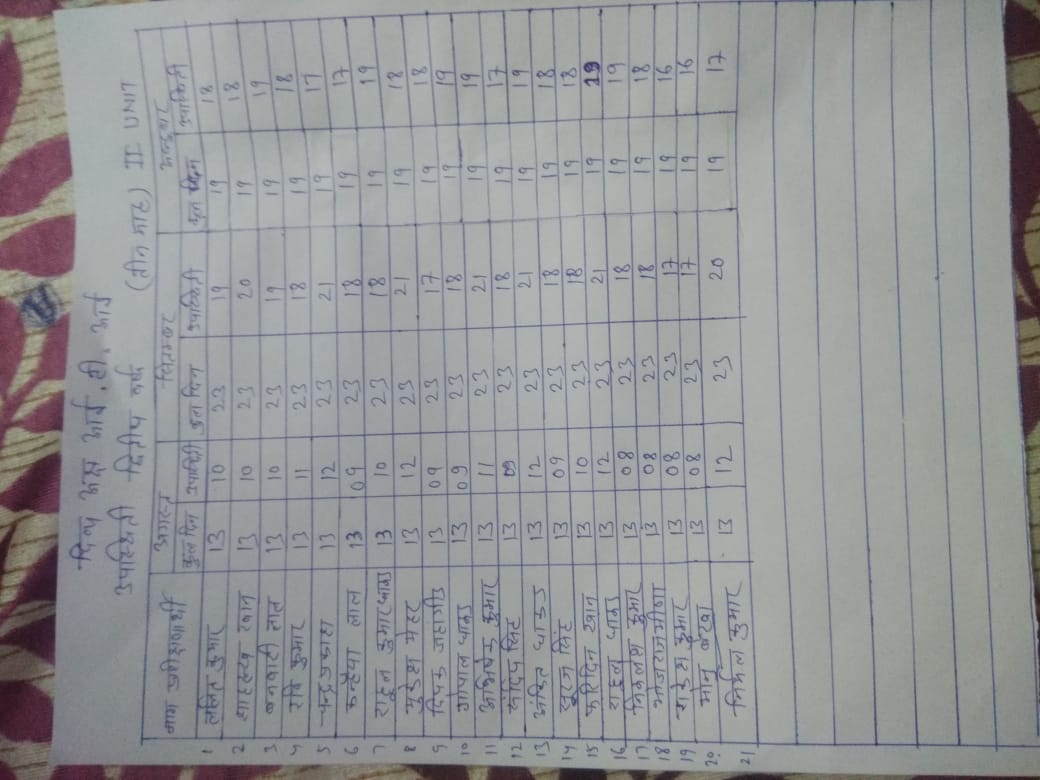 दिव्य अक्ष आई. टी. आई
उपस्थिती द्वितीय वर्ष (तीन माह) II UNIT
नाम प्रशिक्षणार्थी अगस्त सितम्बर अक्टूबर
कुल दिन उपस्थिती कुल दिन उपस्थिती कुल दिन उपस्थिती
1 ललित कुमार 13 10 23 19 19 18
2 शाहरुख खान 13 10 23 20 19 18
3 बनवारी लाल 13 10 23 19 19 19
4 रवि कुमार 13 11 23 18 19 18
5 चन्द्रप्रकाश 13 12 23 21 19 17
6 कन्हैया लाल 13 09 23 18 19 17
7 राहूल कुमार 13 10 23 18 19 19
8 मुकेश मेहर 13 12 23 21 19 18
9 दिपक 13 09 23 17 19 18
10 गोपाल 13 09 23 18 19 19
11 अभिषेक कुमार 13 11 23 21 19 19
12 संदिप सिंह 13 09 23 18 19 17
13 अंकित 13 12 23 21 19 19
14 सूरज सिंह 13 09 23 18 19 18
15 फरिदिन खान 13 10 23 18 19 18
16 राहुल 13 12 23 21 19 19
17 कुमार 13 08 23 18 19 19
18 13 08 23 18 19 18
19 महेश कुमार 13 08 23 17 19 16
20 मोनू 13 08 23 17 19 16
21 निर्मल कुमार 13 12 23 20 19 17